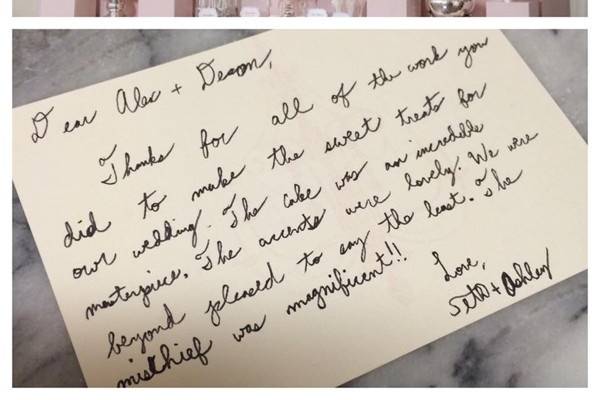 Dear Alex + Devon,
Thanks for all of the work you
did to make the sweet treats for
our wedding. The cake was an incredible
masterpiece. The accents were lovely. We were
beyond pleased to say the least. The
mischief was magnificent!!
Love,
Seth + Ashley